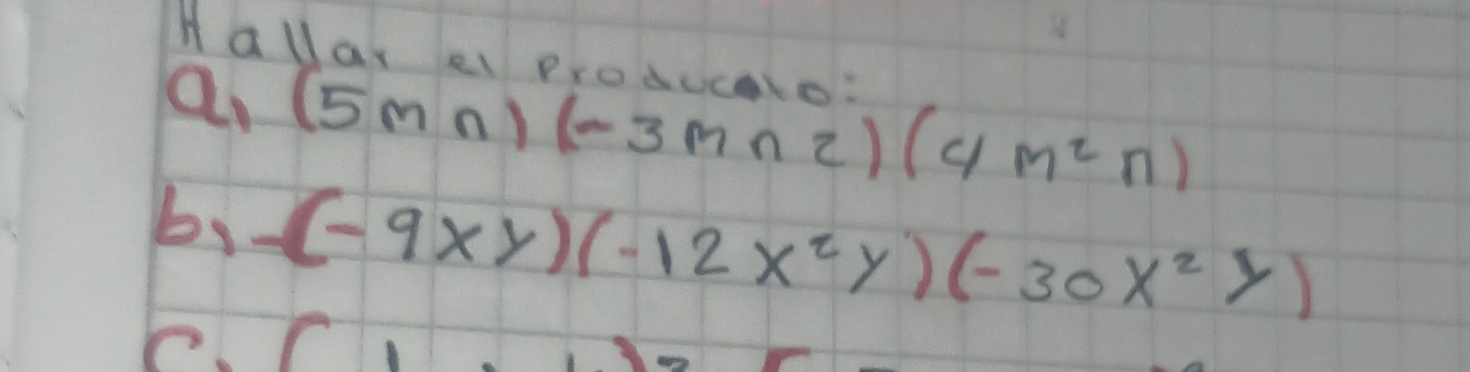 Hallar el Producto:
a, (5mn)(-3mnz)(4m²n)
b, -(-9xy)(-12x²y)(-30x²y)
c, (